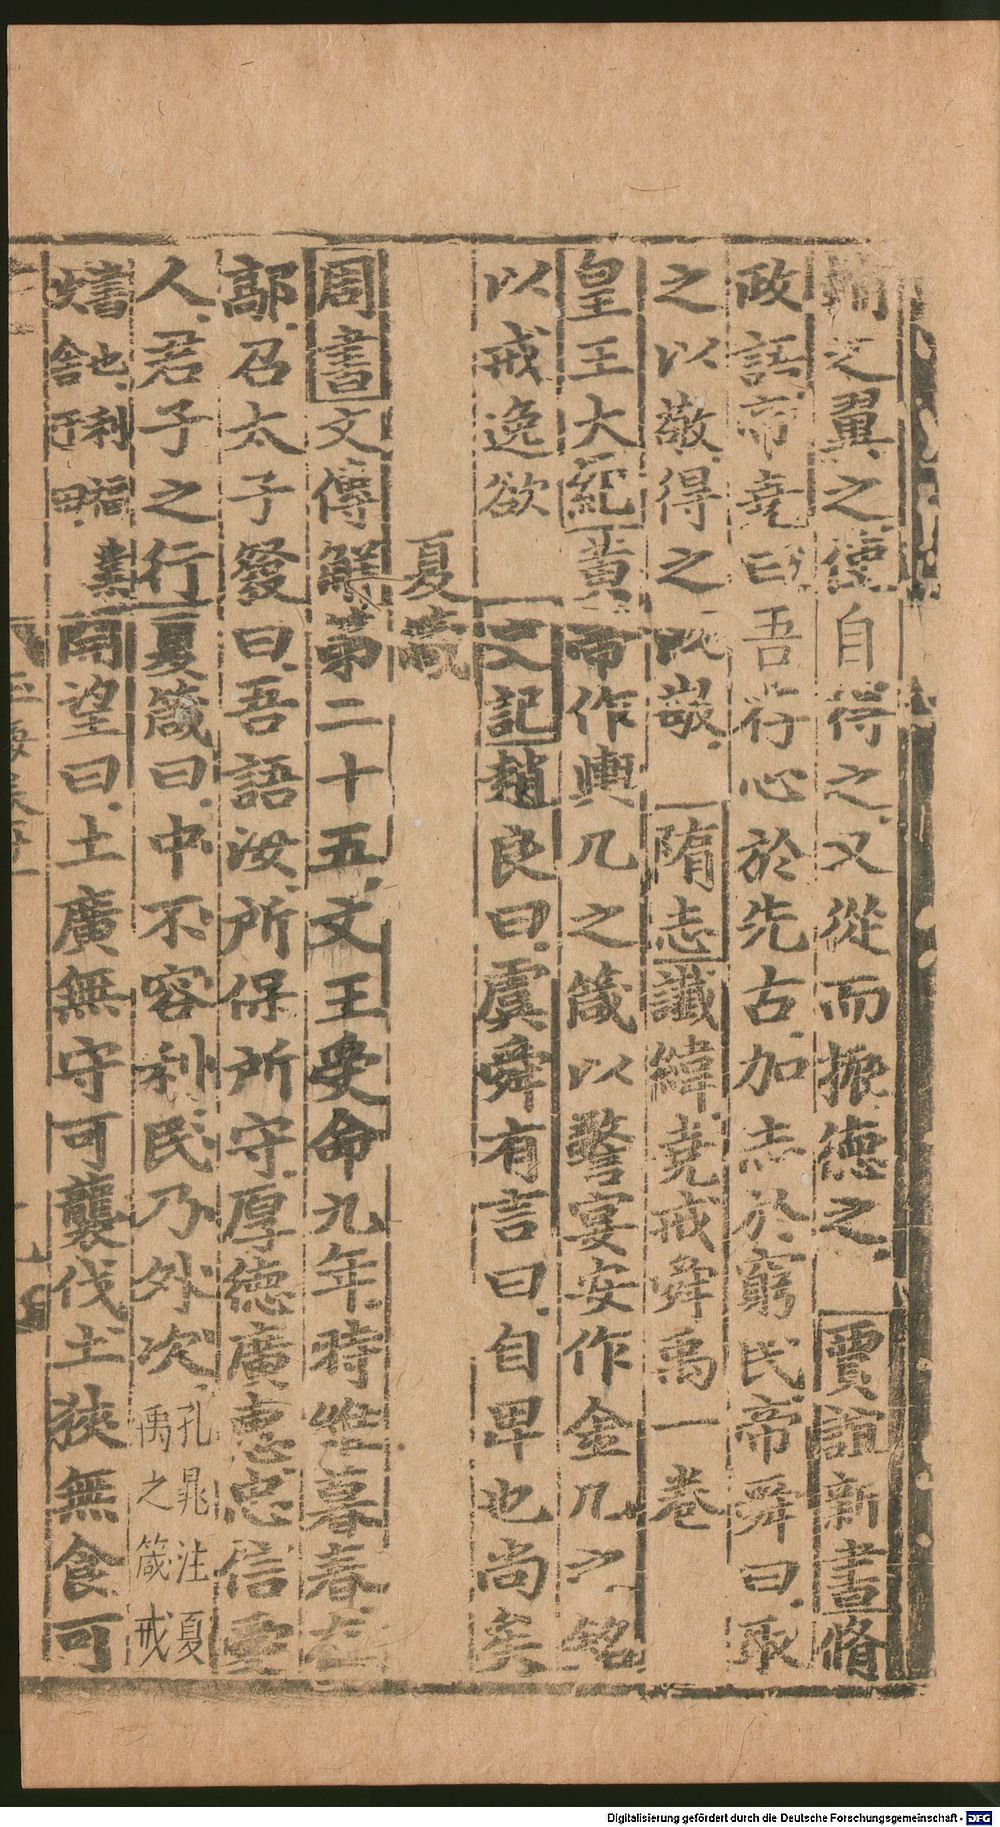 輔之翼之使自得之又從而振德之 賈誼新書脩
政語帝堯曰吾存心於先古加志於窮民帝舜曰取
之以敬得之以敬 隋志讖緯堯戒舜禹一卷
皇王大紀黃帝作輿几之箴以警宴安作金几之銘
以戒逸欲 史記趙良曰虞舜有言曰自卑也尚矣
夏箴
周書文傳解第二十五文王受命九年時惟暮春在
鄗召太子發曰吾語汝所保所守厚德廣惠忠信愛
人君子之行夏箴曰中不容利民乃外次孔晁注夏
禹之箴戒
書也利
嬉舍于田 開望曰土廣無守可襲伐土狹無食可
Digitalisierung gefördert durch die Deutsche Forschungsgemeinschaft - DFG